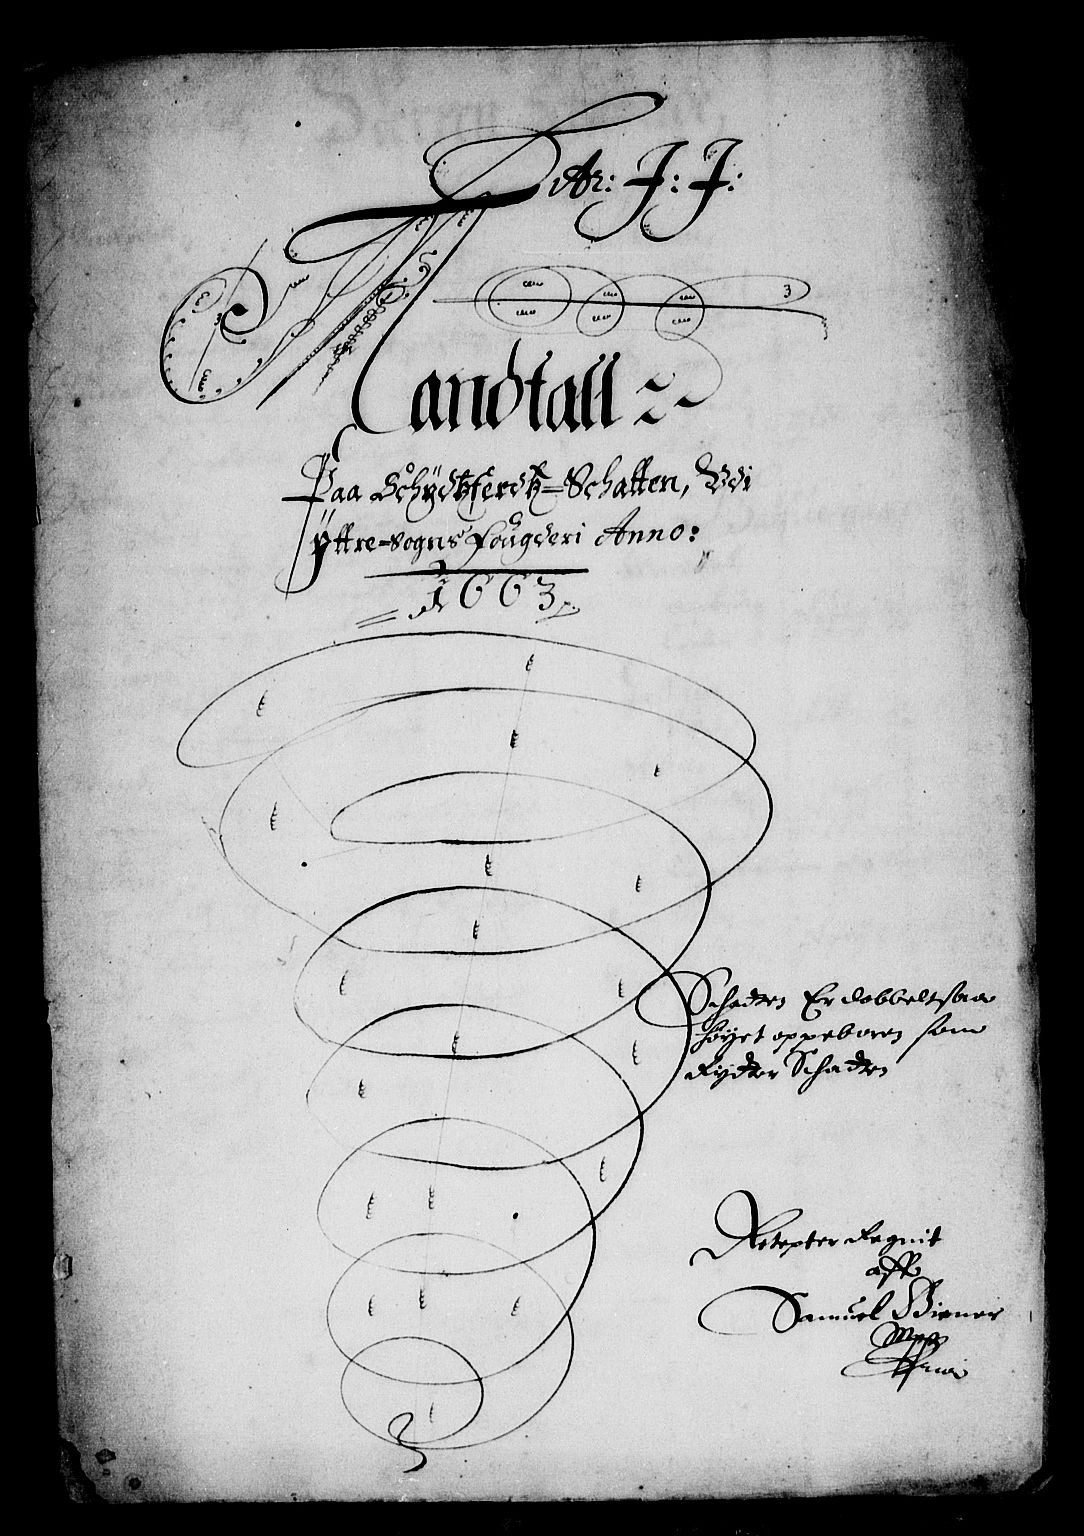 Litr: J: J:
Mandtall
Paa Schydtzferdtz=Schatten, Vdi
Yttre=Sogns Fougderi Anno:
1663
Schadten Er dobbelt saa
høyet oppeboren som
Rytter Schadten
Retepter Regnit
aff
Samuel Biener
Mpp